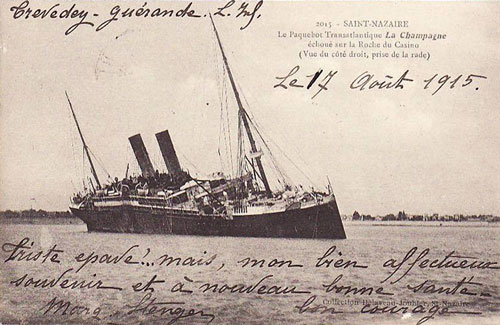 Trevedey - Guérande. L. Inf.
2015 - SAINT-NAZAIRE
Le Paquebot Transatlantique La Champagne
échoué sur la Roche du Casino
(Vue du côté droit, prise de la rade)
Le 17 Août 1915.
Triste epave!... mais, mon bien affectueux
souvenir et à nouveau bonne santé
bon courage
Marg. Stenger
Collection Delaveau, St-Nazaire